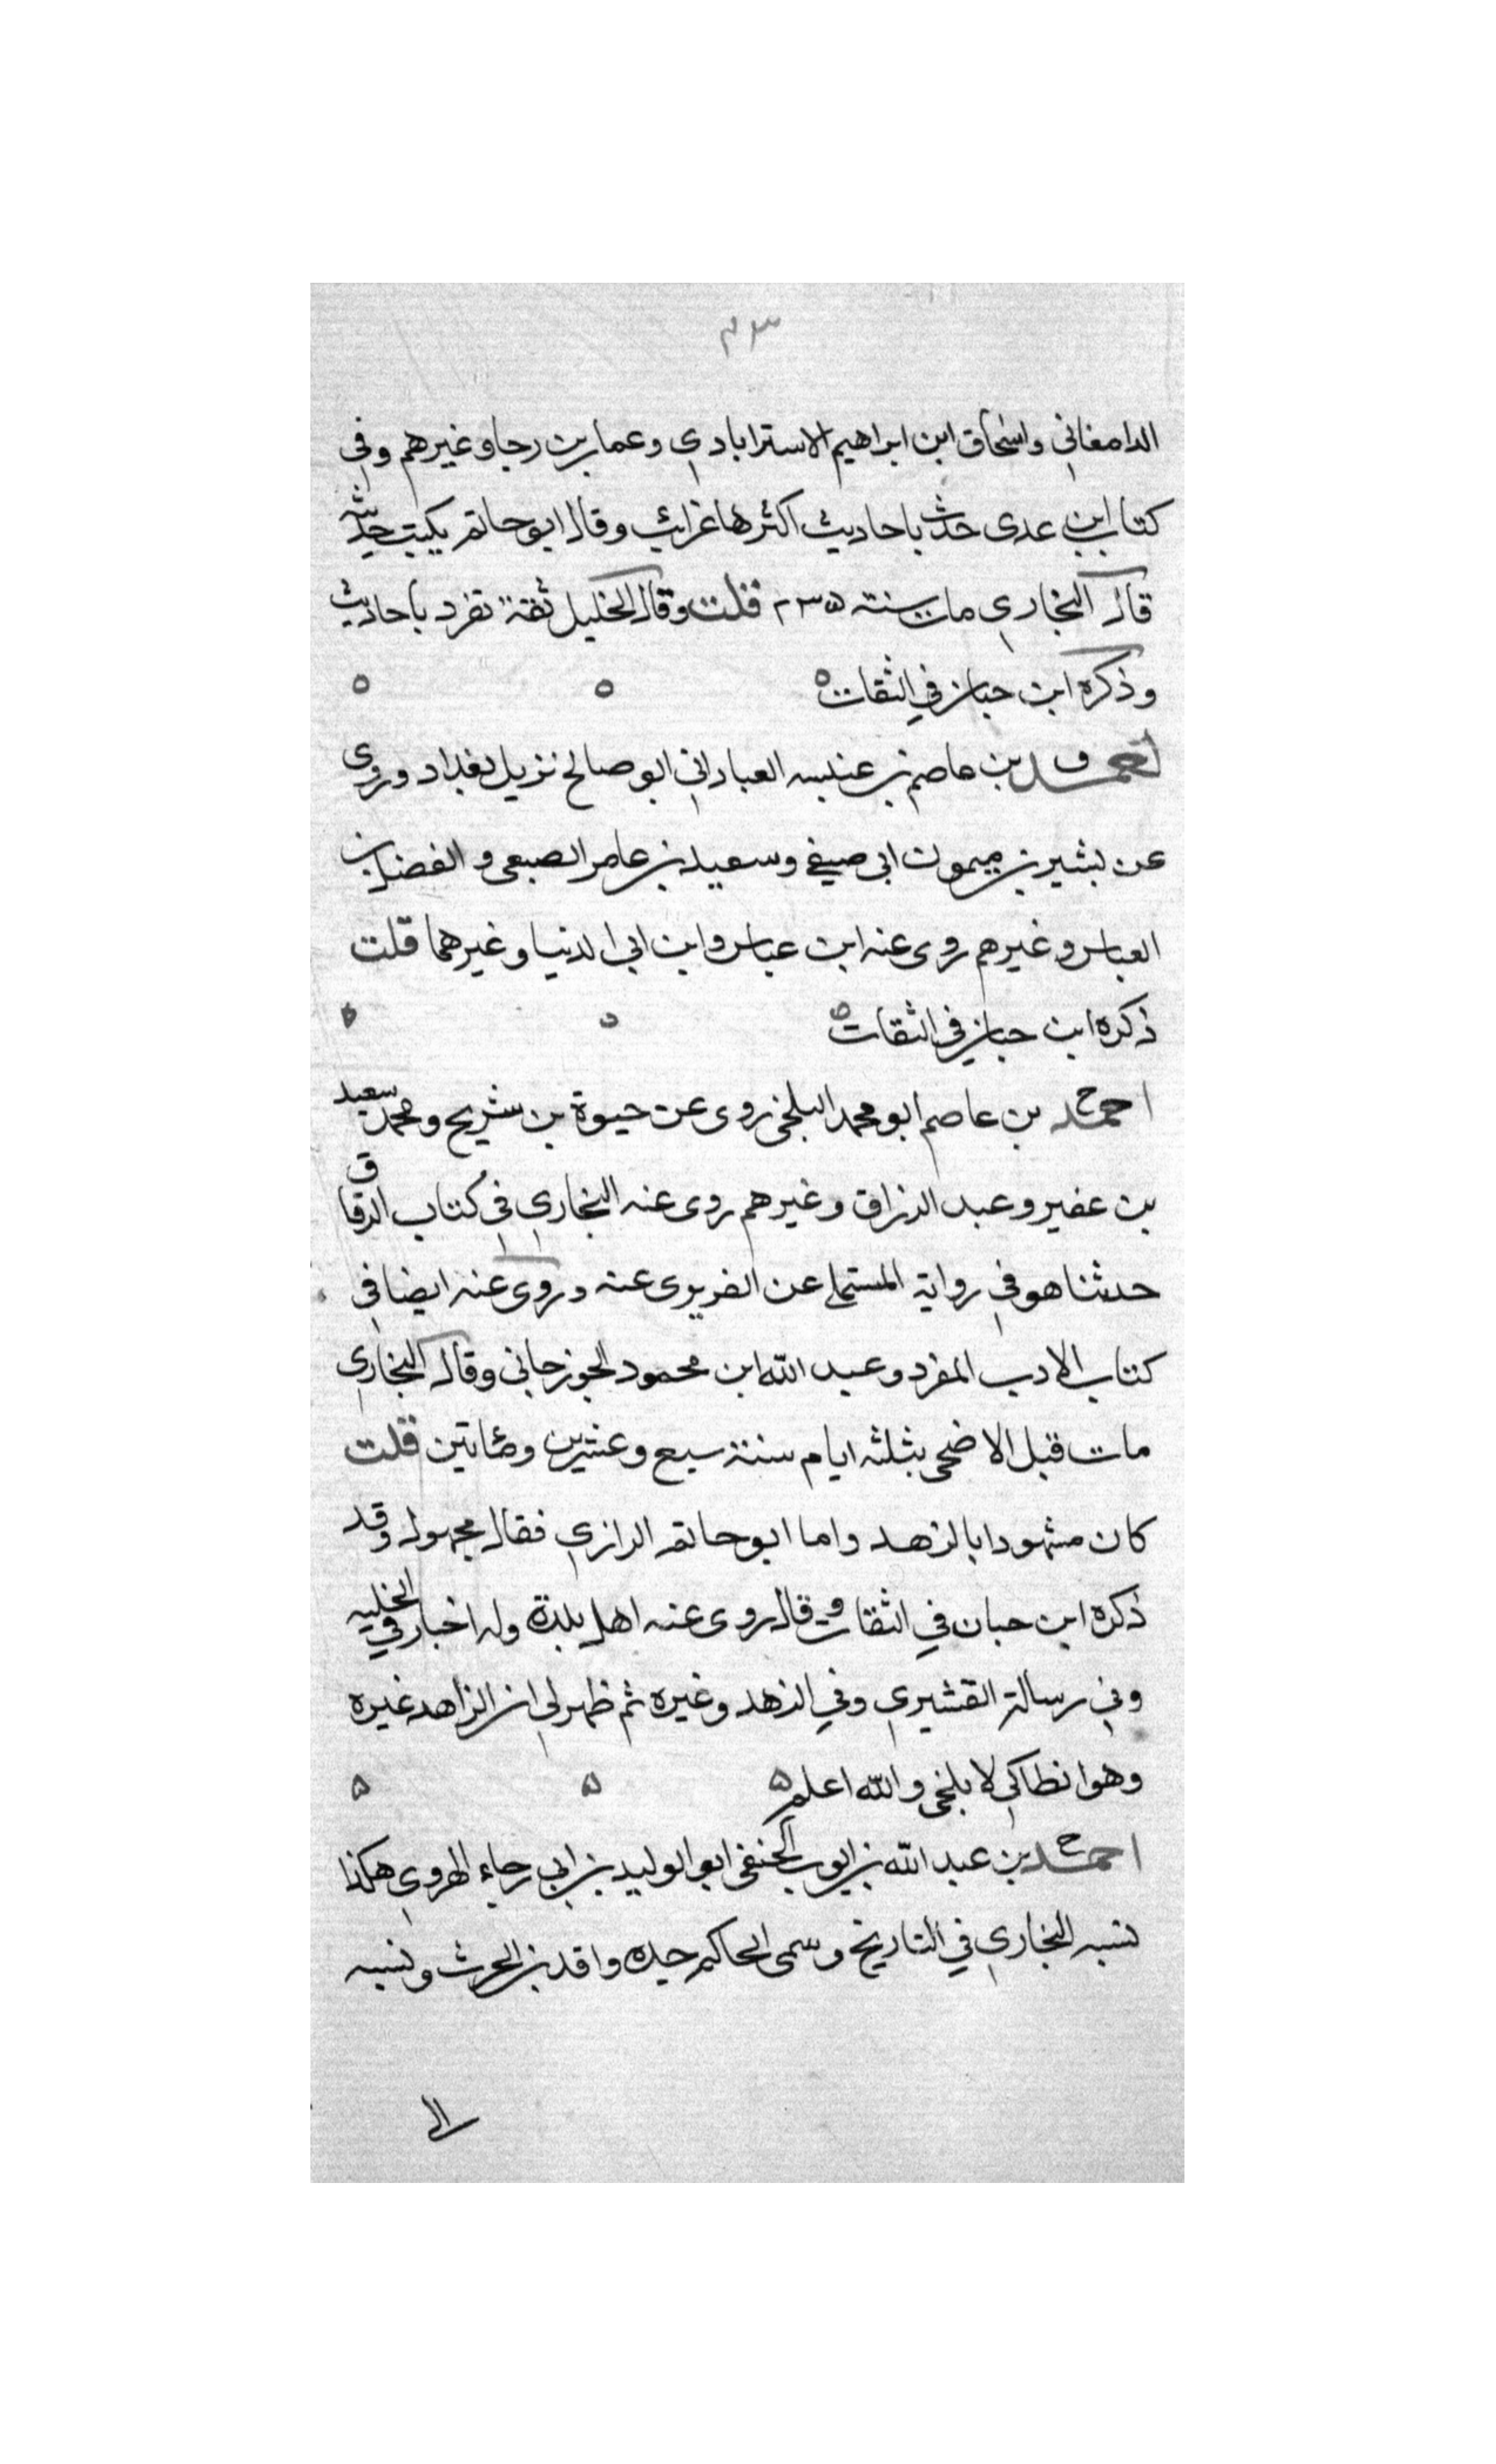 ٤٣
الدامغاني واسحاق ابن ابراهيم الاسترابادي وعمار بن رجا وغيرهم وفي
كتاب ابن عدى حدث باحاديث اكثرها غرائب وقال ابو حاتم يكتب حديثه
قال البخاري مات سنته ٢٣٥ قلت وقال الخليل ثقة تفرد باحاديث
وذكره ابن حبان في الثقات ه ه ه
احمد ق بن عاصم بن عنبسه العباداني ابو صالح نزيل بغداد وروى
عن بشير بن ميمون ابى صيفي وسعيد بن عامر الصبعى والفضل بن
العباس وغيرهم روى عنه ابن عباس وابن ابى الدنيا وغيرهما قلت
ذكره ابن حبان في الثقات ه ه ه
احمد خ بن عاصم ابو محمد البلخى روى عن حيوة بن شريح ومحمد سعيد
بن عفير وعبد الرزاق وغيرهم روى عنه البخاري في كتاب الرقاق
حدثنا هو في رواية المستملي عن الفربرى عنه وروى عنه ايضا في
كتاب الادب المفرد وعبد الله ابن محمود الجوزجاني وقال البخاري
مات قبل الاضحى بثلثه ايام سنة سبع وعشرين ومائتين قلت
كان مشهودا بالزهد واما ابو حاتم الرازي فقال مجهول وقد
ذكره ابن حبان في الثقات وقال روى عنه اهل بلدة وله اخبار في الحليه
وفي رسالة القشيري وفي الزهد وغيره ثم ظهر لي ان الزاهد غيره
وهو انطاكي لا بلخى والله اعلم ه ه ه
احمد خ بن عبد الله بن ايوب الحنفى ابو الوليد بن ابى رجاء الهروي هكذا
نسبه البخاري في التاريخ وسمى الحاكم جده واقد بن الحرث ونسبه
الى